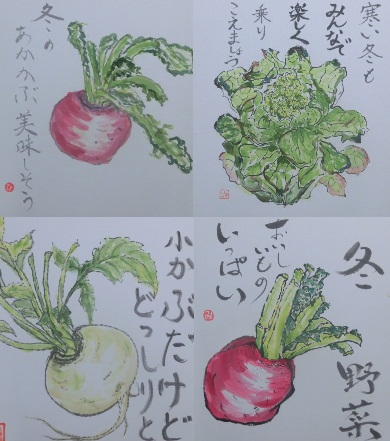 冬の
あかかぶ美味しそう
寒い冬も
みんなで
楽しく
乗り
こえましょう
小かぶだけど
どっしりと
冬野菜
おいし
いもの
いっぱい